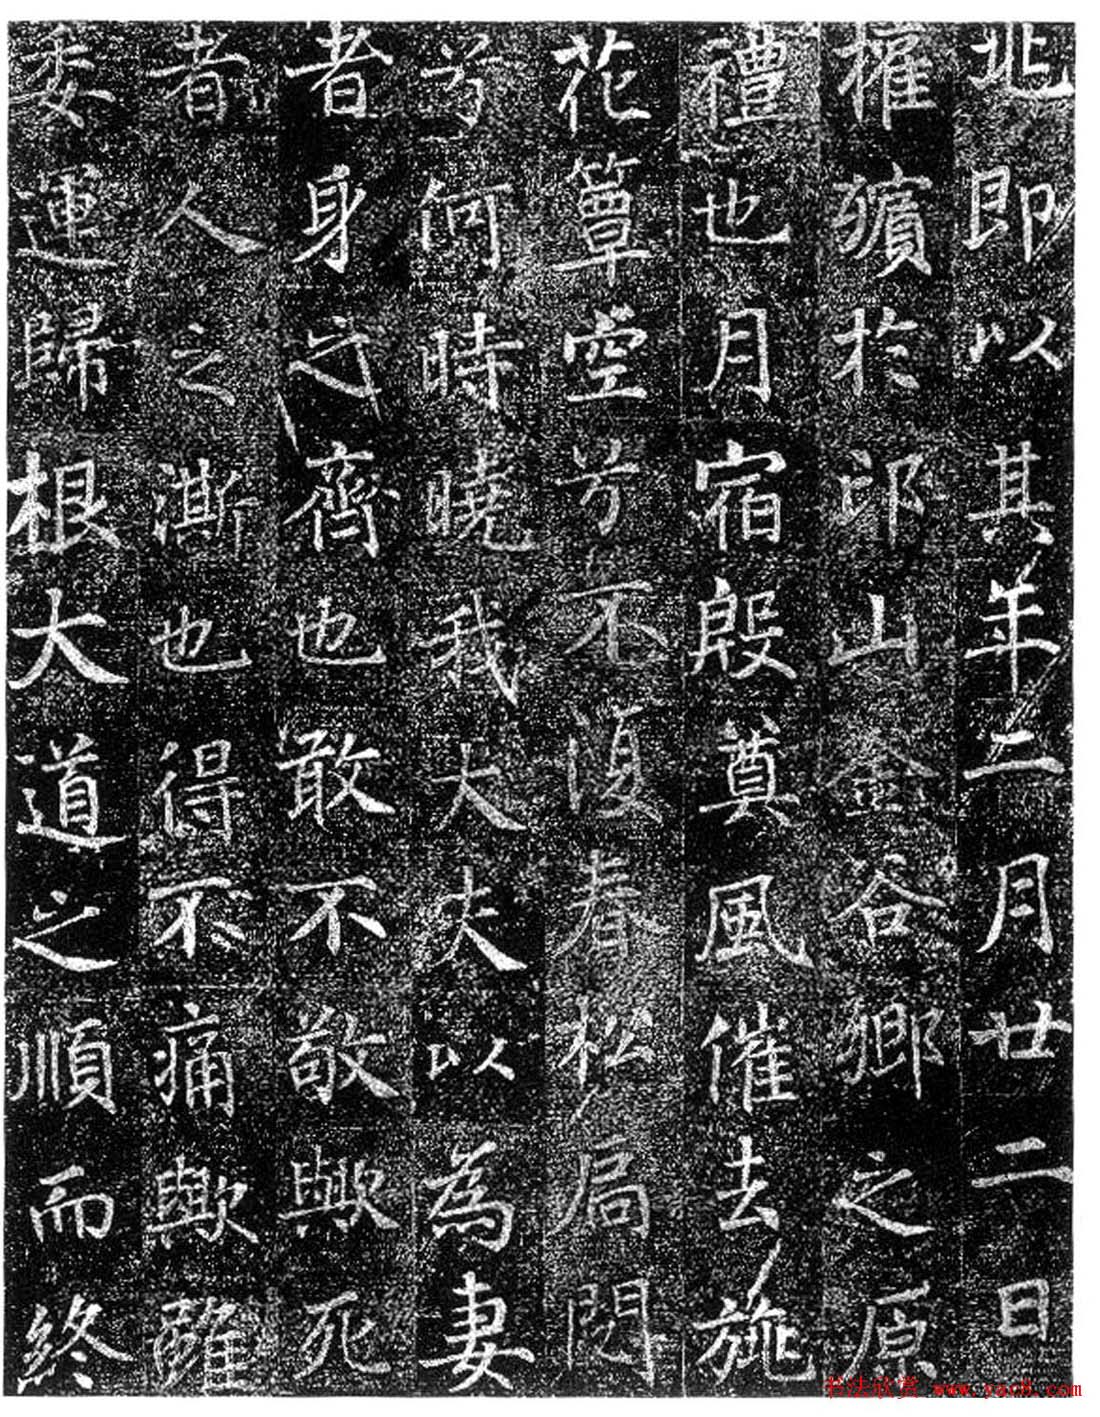 兆即以其年二月廿二日
權殯於邙山金谷鄉之原
禮也月宿殷奠風催去旐
花簟空兮不復春松扃閟
兮何時曉我大夫以為妻
者身之齊也敢不敬歟死
者人之澌也得不痛歟雖
委運歸根大道之順而終
书法欣赏 www.yac8.com